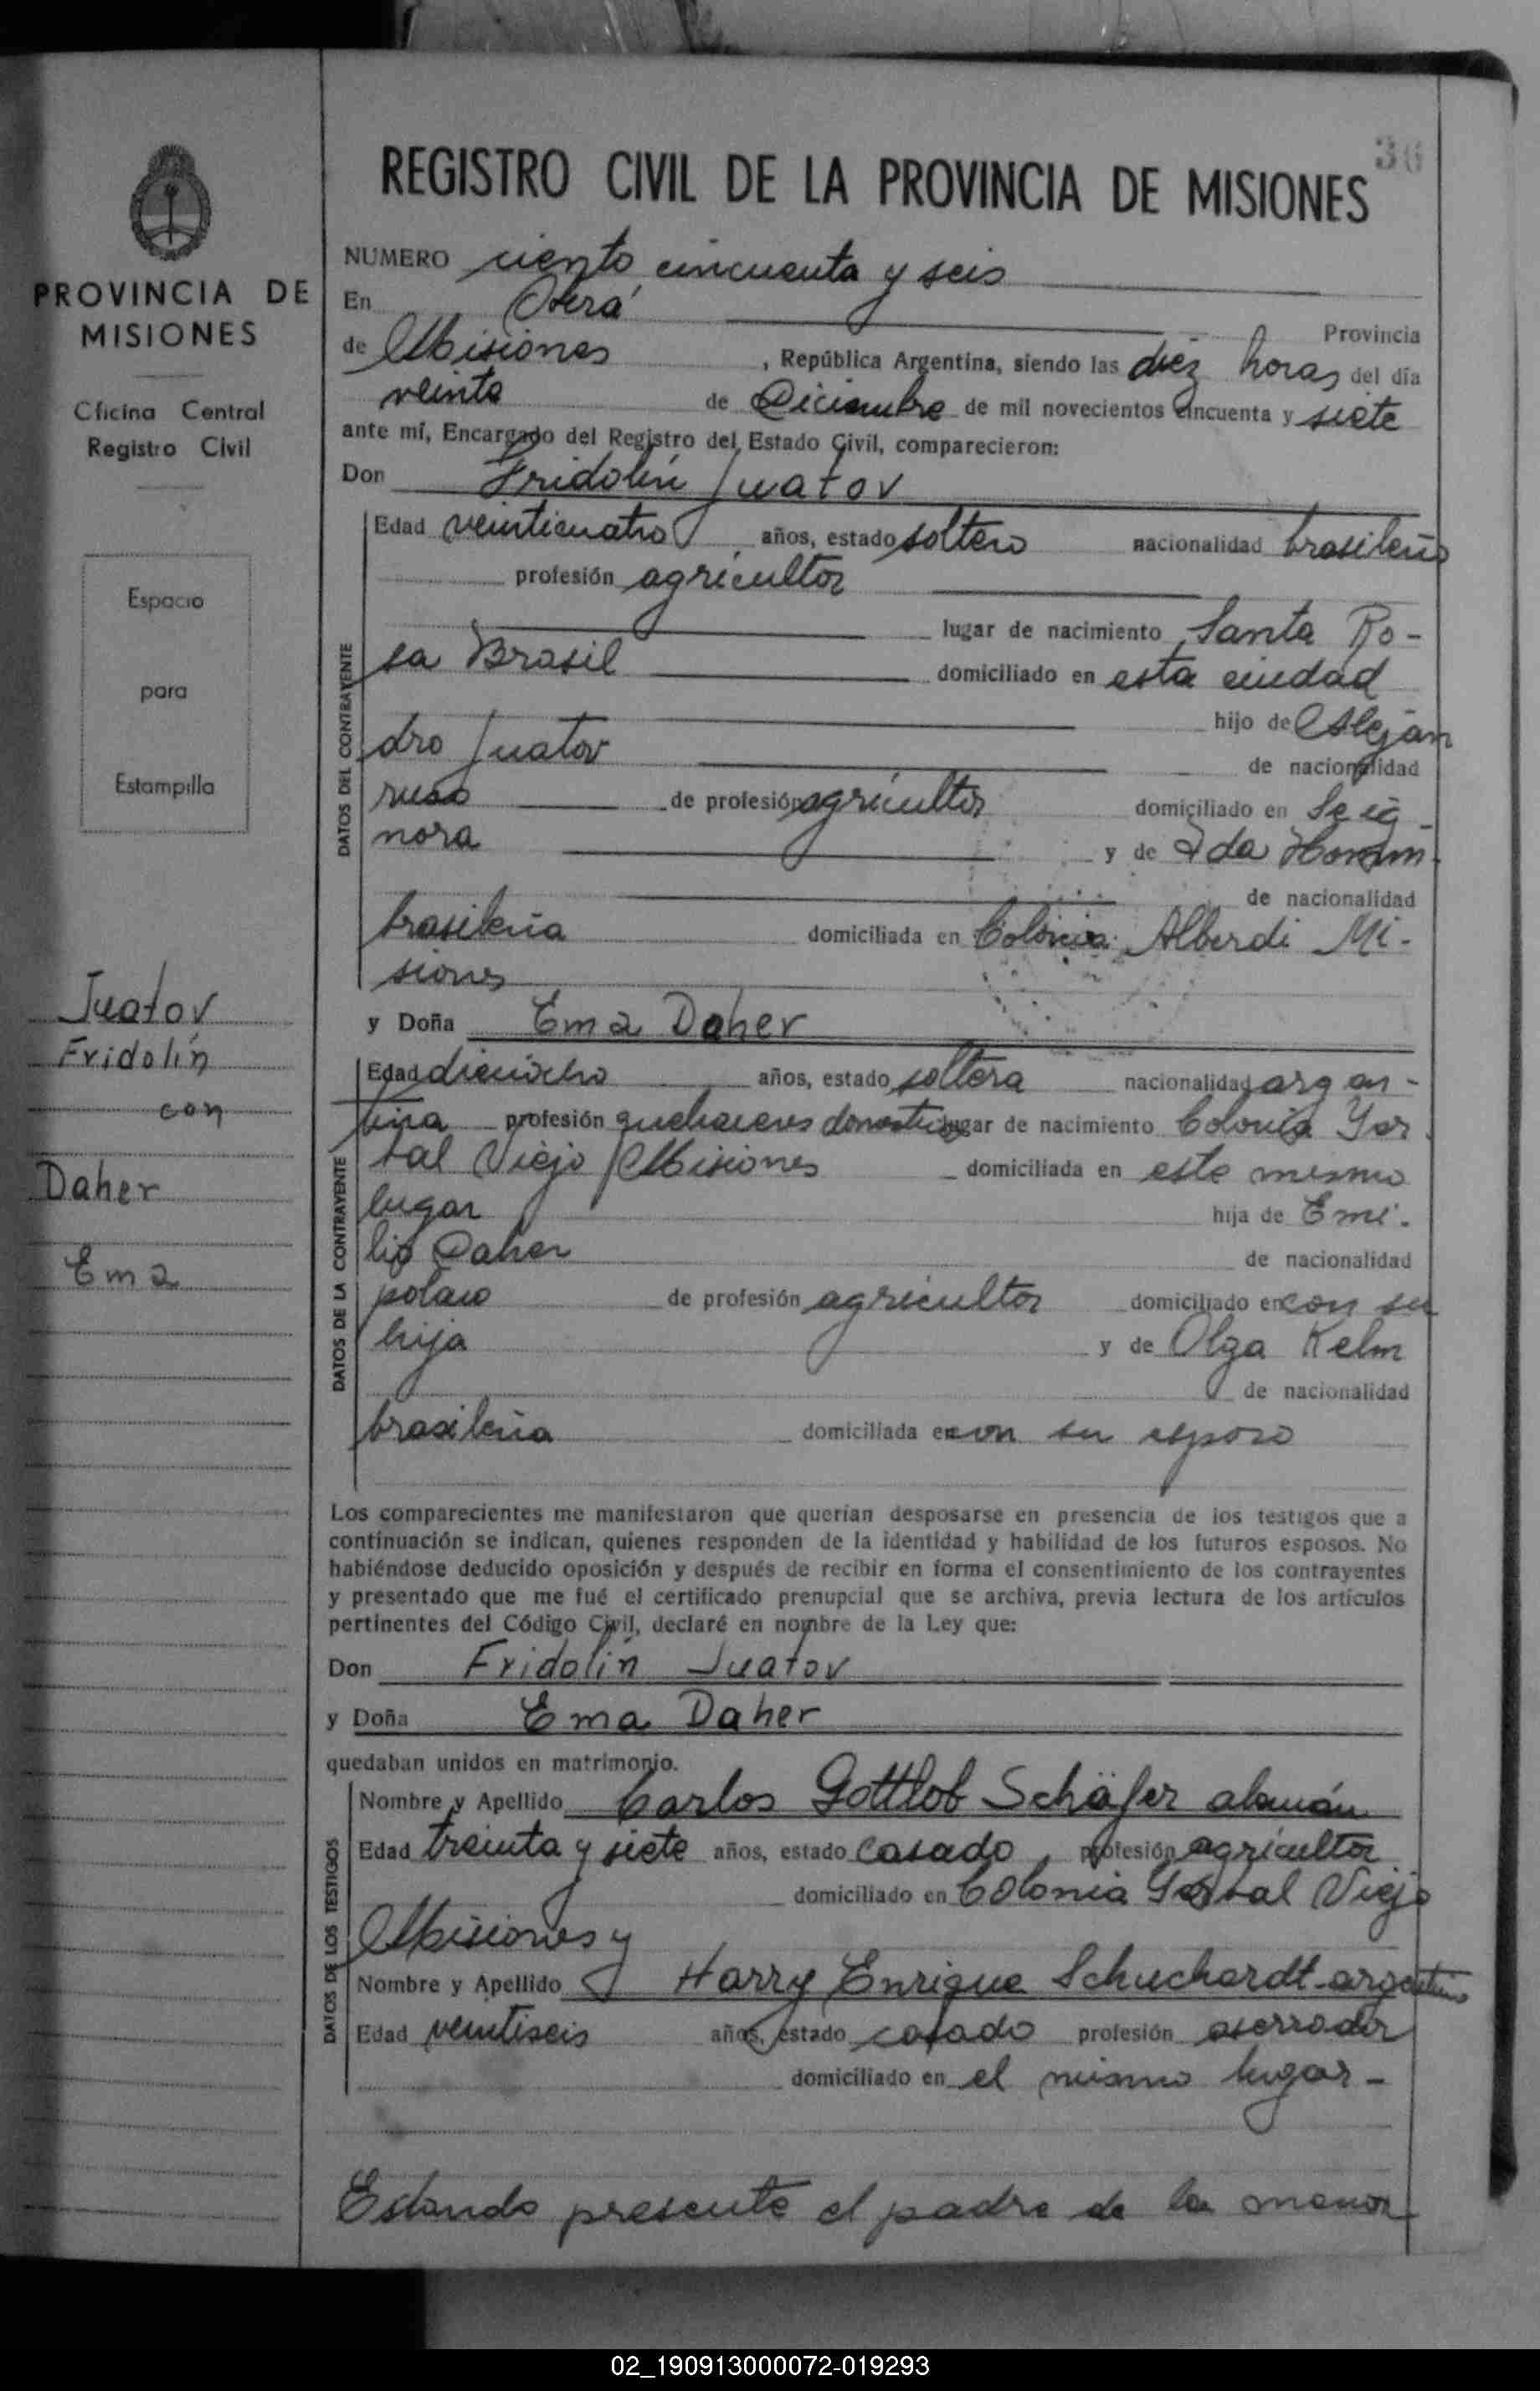 36
REGISTRO CIVIL DE LA PROVINCIA DE MISIONES
PROVINCIA DE
MISIONES
Oficina Central
Registro Civil
Espacio
para
Estampilla
Juatov
Fridolín
con
Daher
Ema
NUMERO ciento cincuenta y seis
En Oberá Provincia
de Misiones, República Argentina, siendo las diez horas del día
veinte de Diciembre de mil novecientos cincuenta y siete
ante mí, Encargado del Registro del Estado Civil, comparecieron:
Don Fridolín Juatov
DATOS DEL CONTRAYENTE
Edad veinticuatro años, estado soltero nacionalidad brasileño
profesión agricultor
lugar de nacimiento Santa Ro-
sa Brasil domiciliado en esta ciudad
hijo de Alejan
dro Juatov de nacionalidad
ruso de profesión agricultor domiciliado en Se ig
nora y de Ida
de nacionalidad
brasileña domiciliada en Colonia Alberdi Mi-
siones
y Doña Ema Daher
DATOS DE LA CONTRAYENTE
Edad dieciocho años, estado soltera nacionalidad argen-
tina profesión quehaceres domesticos lugar de nacimiento Colonia Yer
bal Viejo Misiones domiciliada en este mismo
lugar hija de Emi-
lio Daher de nacionalidad
polaco de profesión agricultor domiciliado en con su
hija y de Olga Kelm
de nacionalidad
brasileña domiciliada en con su esposo
Los comparecientes me manifestaron que querían desposarse en presencia de los testigos que a
continuación se indican, quienes responden de la identidad y habilidad de los futuros esposos. No
habiéndose deducido oposición y después de recibir en forma el consentimiento de los contrayentes
y presentado que me fué el certificado prenupcial que se archiva, previa lectura de los artículos
pertinentes del Código Civil, declaré en nombre de la Ley que:
Don Fridolín Juatov
y Doña Ema Daher
quedaban unidos en matrimonio.
DATOS DE LOS TESTIGOS
Nombre y Apellido Carlos Gottlob Schäfer alemán
Edad treinta y siete años, estado casado, profesión agricultor
domiciliado en Colonia Yerbal Viejo
Misiones y
Nombre y Apellido Harry Enrique Schuchardt-argentino
Edad veintiseis años, estado casado profesión aserrador
domiciliado en el mismo lugar-
Estando presente el padre de la menor
02_190913000072-019293